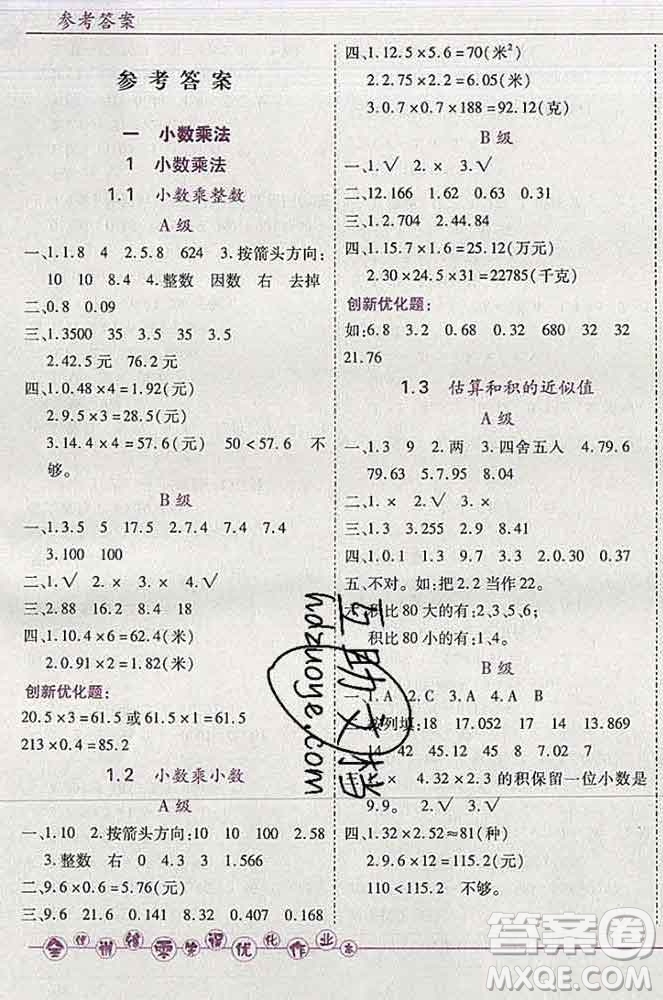 参考答案
参考答案
一 小数乘法
1 小数乘法
1.1 小数乘整数
A 级
一、1.1.8 4 2.5.8 624 3.按箭头方向:
10 10 8.4 4.整数 因数 右 去掉
二、0.8 0.09
三、1.3500 35 35 35 35
2.42.5元 76.2元
四、1.0.48×4=1.92(元)
2.9.5×3=28.5(元)
3.14.4×4=57.6(元) 50<57.6 不
够。
B 级
一、1.3.5 5 17.5 2.7.4 7.4 7.4
3.100 100
二、1.√ 2.× 3.× 4.√
三、2.88 16.2 8.4 18
四、1.0.4×6=2.4(米)
2.0.91×2=1.82(米)
创新优化题:
20.5×3=61.5 或61.5×1=61.5
213×0.4=85.2
1.2 小数乘小数
A 级
一、1.10 2.按箭头方向:10 100 2.58
3.整数 右 0 4.3 1.566
二、9.6×0.6=5.76(元)
三、9.6 21.6 0.141 8.32 0.407 0.168
四、1.12.5×5.6=70(米²)
2.2.75×2.2=6.05(米)
3.0.7×0.7×188=92.12(克)
B 级
一、1.√ 2.× 3.√
二、12.166 1.62 0.63 10.83
三、1.2.704 2.44.84
四、1.15.7×1.6=25.12(万元)
2.30×24.5×31=22785(千克)
创新优化题:
如:6.8 3.2 0.68 0.32 680 32 32
21.76
1.3 估算和积的近似值
A 级
一、1.3 9 2.两 3.四舍五人 4.79.6
79.63 5.7.95 8.04
二、1.× 2.√ 3.×
三、1.3 3.255 2.8 2.83
四、1.0.1 1.9 9.7 3.3 2.0.63
五、不对。如:把2.2当作22。
积比80大的有:2、3、5、6;
积比80小的有:1、4。
B 级
一、1.A 2.C 3.A 4.A 5.B
填:18 17.052 17 14 13.869
42 45 12 8 7.09 9 9.15
4.32×2.3的积保留一位小数是
9.9。 2.√ 3.√ 4.×
四、1.32×2.52≈81(种)
2.9.6×12=115.2(元)
110<115.2 不够。
互助文档
hdzuoye.com
全 优 化 作 业
答案圈
MXQE.COM